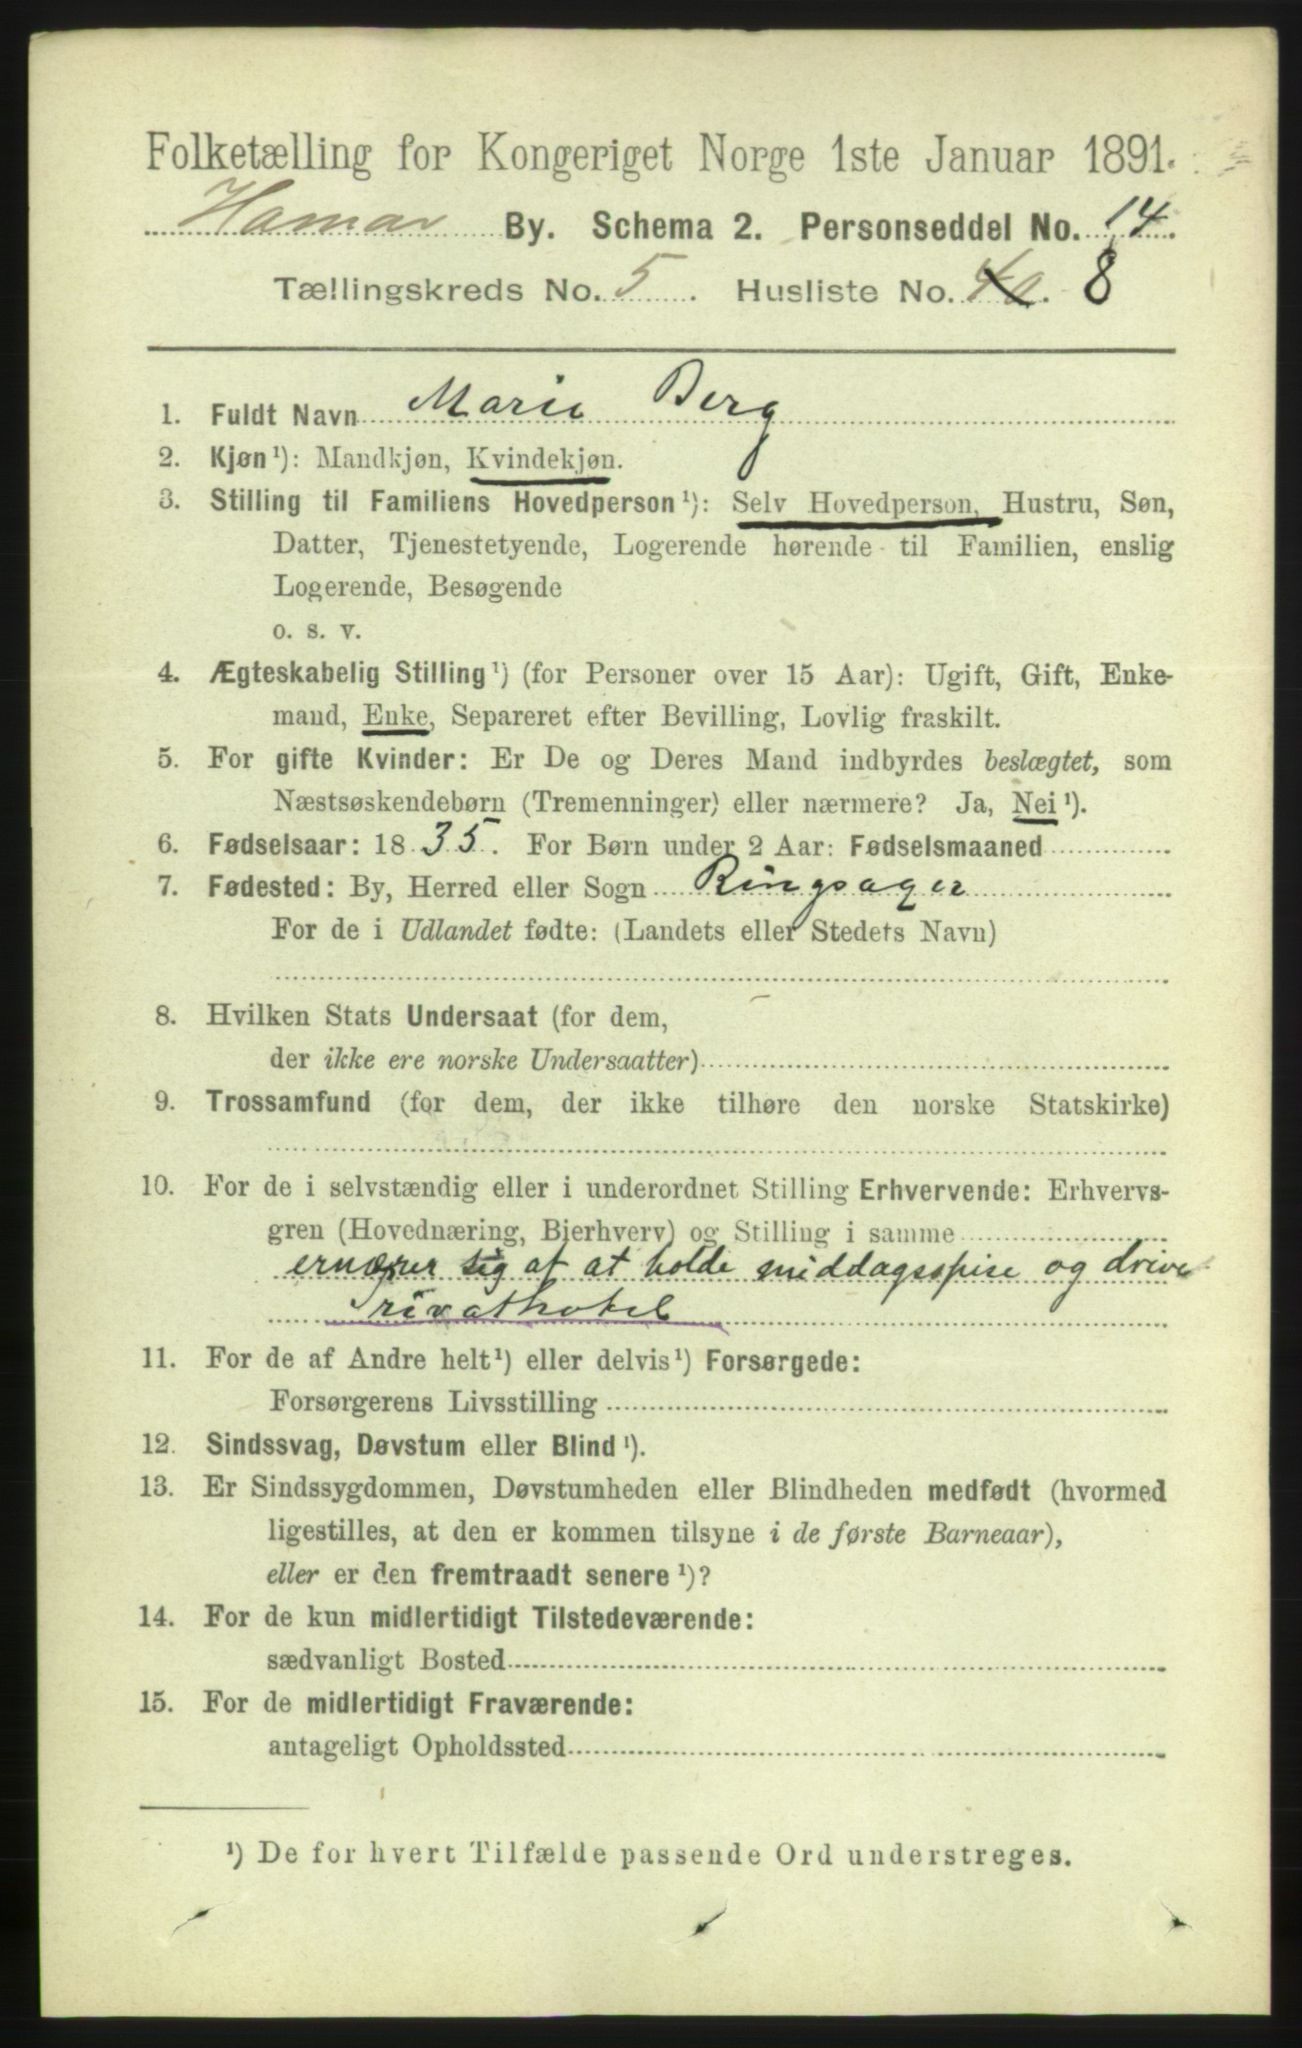 Folketælling for Kongeriget Norge 1ste Januar 1891.
Hamar By. Schema 2. Personseddel No. 14.
Tællingskreds No. 5. Husliste No. 8
1. Fuldt Navn Marie Berg
2. Kjøn¹): Mandkjøn, Kvindekjøn.
3. Stilling til Familiens Hovedperson¹): Selv Hovedperson, Hustru, Søn,
Datter, Tjenestetyende, Logerende hørende til Familien, enslig
Logerende, Besøgende
o. s. v.
4. Ægteskabelig Stilling¹) (for Personer over 15 Aar): Ugift, Gift, Enke-
mand, Enke, Separeret efter Bevilling, Lovlig fraskilt.
5. For gifte Kvinder: Er De og Deres Mand indbyrdes beslægtet, som
Næstsøskendebørn (Tremenninger) eller nærmere? Ja, Nei¹).
6. Fødselsaar: 1835. For Børn under 2 Aar: Fødselsmaaned
7. Fødested: By, Herred eller Sogn Ringsager
For de i Udlandet fødte: (Landets eller Stedets Navn)
8. Hvilken Stats Undersaat (for dem,
der ikke ere norske Undersaatter)
9. Trossamfund (for dem, der ikke tilhøre den norske Statskirke)
10. For de i selvstændig eller i underordnet Stilling Erhvervende: Erhvervs-
gren (Hovednæring, Bierhverv) og Stilling i samme
ernærer sig af at holde middagsspise og drive
Privathotel
11. For de af Andre helt¹) eller delvis¹) Forsørgede:
Forsørgerens Livsstilling
12. Sindssvag, Døvstum eller Blind¹).
13. Er Sindssygdommen, Døvstumheden eller Blindheden medfødt (hvormed
ligestilles, at den er kommen tilsyne i de første Barneaar),
eller er den fremtraadt senere¹)?
14. For de kun midlertidigt Tilstedeværende:
sædvanligt Bosted
15. For de midlertidigt Fraværende:
antageligt Opholdssted
¹) De for hvert Tilfælde passende Ord understreges.